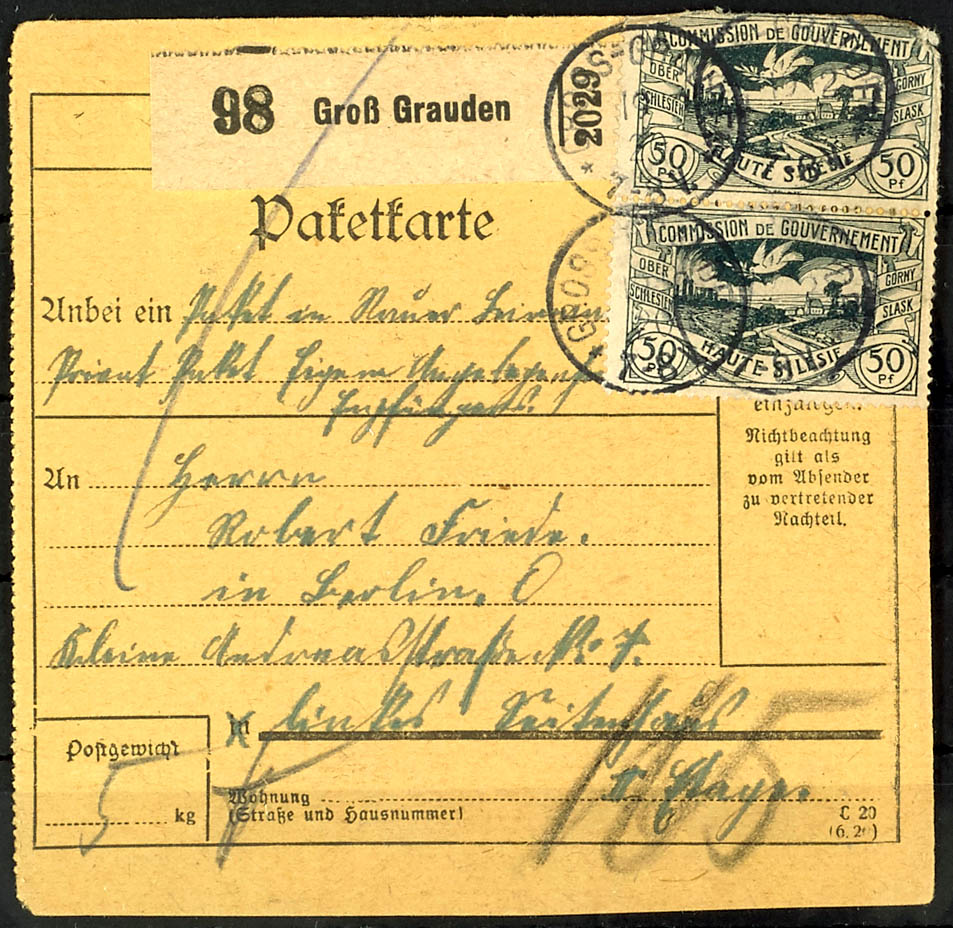 98 Groß Grauden
2029
COMMISSION DE GOUVERNEMENT
OBER SCHLESIEN
GORNY SLASK
50 Pf
HAUTE SILESIE
50 Pf
COMMISSION DE GOUVERNEMENT
OBER SCHLESIEN
GORNY SLASK
50 Pf
HAUTE-SILESIE
50 Pf
Paketkarte
Anbei ein Paket in
Privat Paket Eigene
Nichtbeachtung
gilt als
vom Absender
zu vertretender
Nachteil.
An Herrn
Robert Friede.
in Berlin. O
Kleine Andreasstraße No. 7.
in linkes Seitenhaus
Etage.
Postgewicht
5 kg
Wohnung
(Straße und Hausnummer)
C 20
185